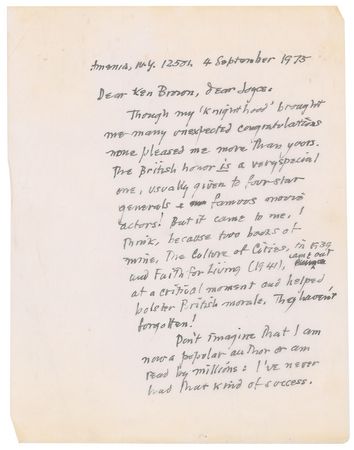 Amenia, N.Y. 12501. 4 September 1975
Dear Ken Brown, dear Joyce:
Though my 'Knighthood' brought
me many unexpected congratulations
none pleased me more than yours.
The British honor is a very special
one, usually given to four star
generals & famous movie
actors! But it came to me, I
think, because two books of
mine, The Culture of Cities, in 1939
and Faith for Living (1941), came out
at a critical moment and helped
bolster British morale. They haven't
forgotten!
Don't imagine that I am
now a popular author or am
read by millions: I've never
had that kind of success.